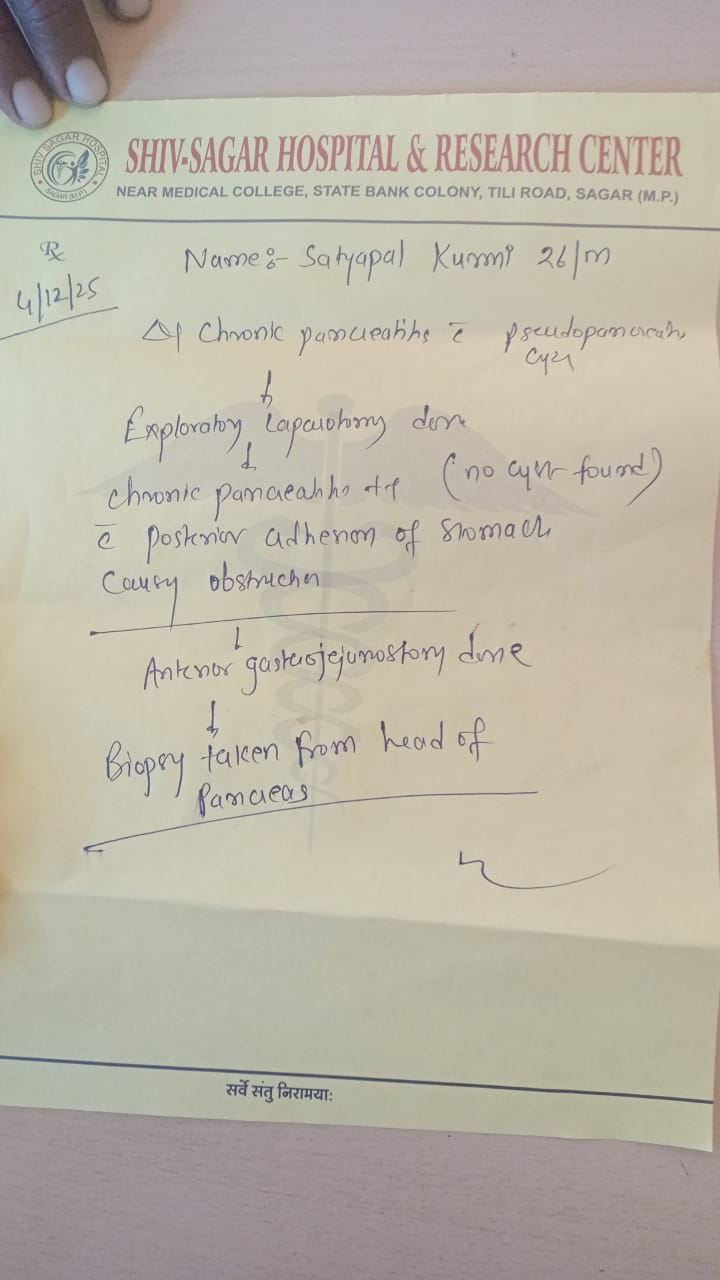 SHIV-SAGAR HOSPITAL & RESEARCH CENTER
NEAR MEDICAL COLLEGE, STATE BANK COLONY, TILI ROAD, SAGAR (M.P.)
SHIV SAGAR HOSPITAL
SAGAR (M.P.)
Rx
4/12/25
Name:- Satyapal Kurmi 26/m
Chronic pancreatitis c̄ pseudopancreatic
cyst
↓
Exploratory laparotomy done
↓
chronic pancreatitis (no cyst found)
c̄ posterior adhesion of stomach
causing obstruction
↓
Anterior gastrojejunostomy done
↓
Biopsy taken from head of
Pancreas
सर्वे संतु निरामया: